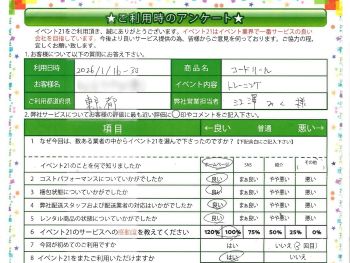 ★ご利用時のアンケート★
イベント21をご利用頂き、誠にありがとうございます。イベント21はイベント業界で一番サービスの良い
会社を目指しています。今後より良いサービス提供の為、皆様からご意見を伺っております。ご協力の程、
宜しくお願い致します。
1.お客様について以下の質問にお答え下さい。
利用日時 2026/1/16-20 商品名 コードリール
お客様名 イベント内容 トレーニング
ご利用都道府県 東京都 弊社営業担当者 様
2.弊社サービスについてお客様の評価に最も近い評価に○印やコメントをご記入下さい。
項目 ←良い 普通 悪い→
1 なぜ今回、数ある業者の中からイベント21を選んで下さったのですか?
イベント21のことを何で知りましたか ホームページ SNS 紹介 その他
2 コストパフォーマンスについていかがでしたか 良い まぁ良い やや悪い 悪い
3 梱包状態についていかがでしたか 良い まぁ良い やや悪い 悪い
4 弊社配送スタッフおよび配送業者の対応はいかがでしたか 良い まぁ良い やや悪い 悪い
5 レンタル商品の状態についていかがでしたか 良い まぁ良い やや悪い 悪い
6 イベント21のサービスへの感動度を教えてください 120% 100% 75% 50% 25% 0%
7 今回が初めてのご利用ですか はい いいえ( 回目)
8 イベント21をまたご利用いただけますか はい いいえ